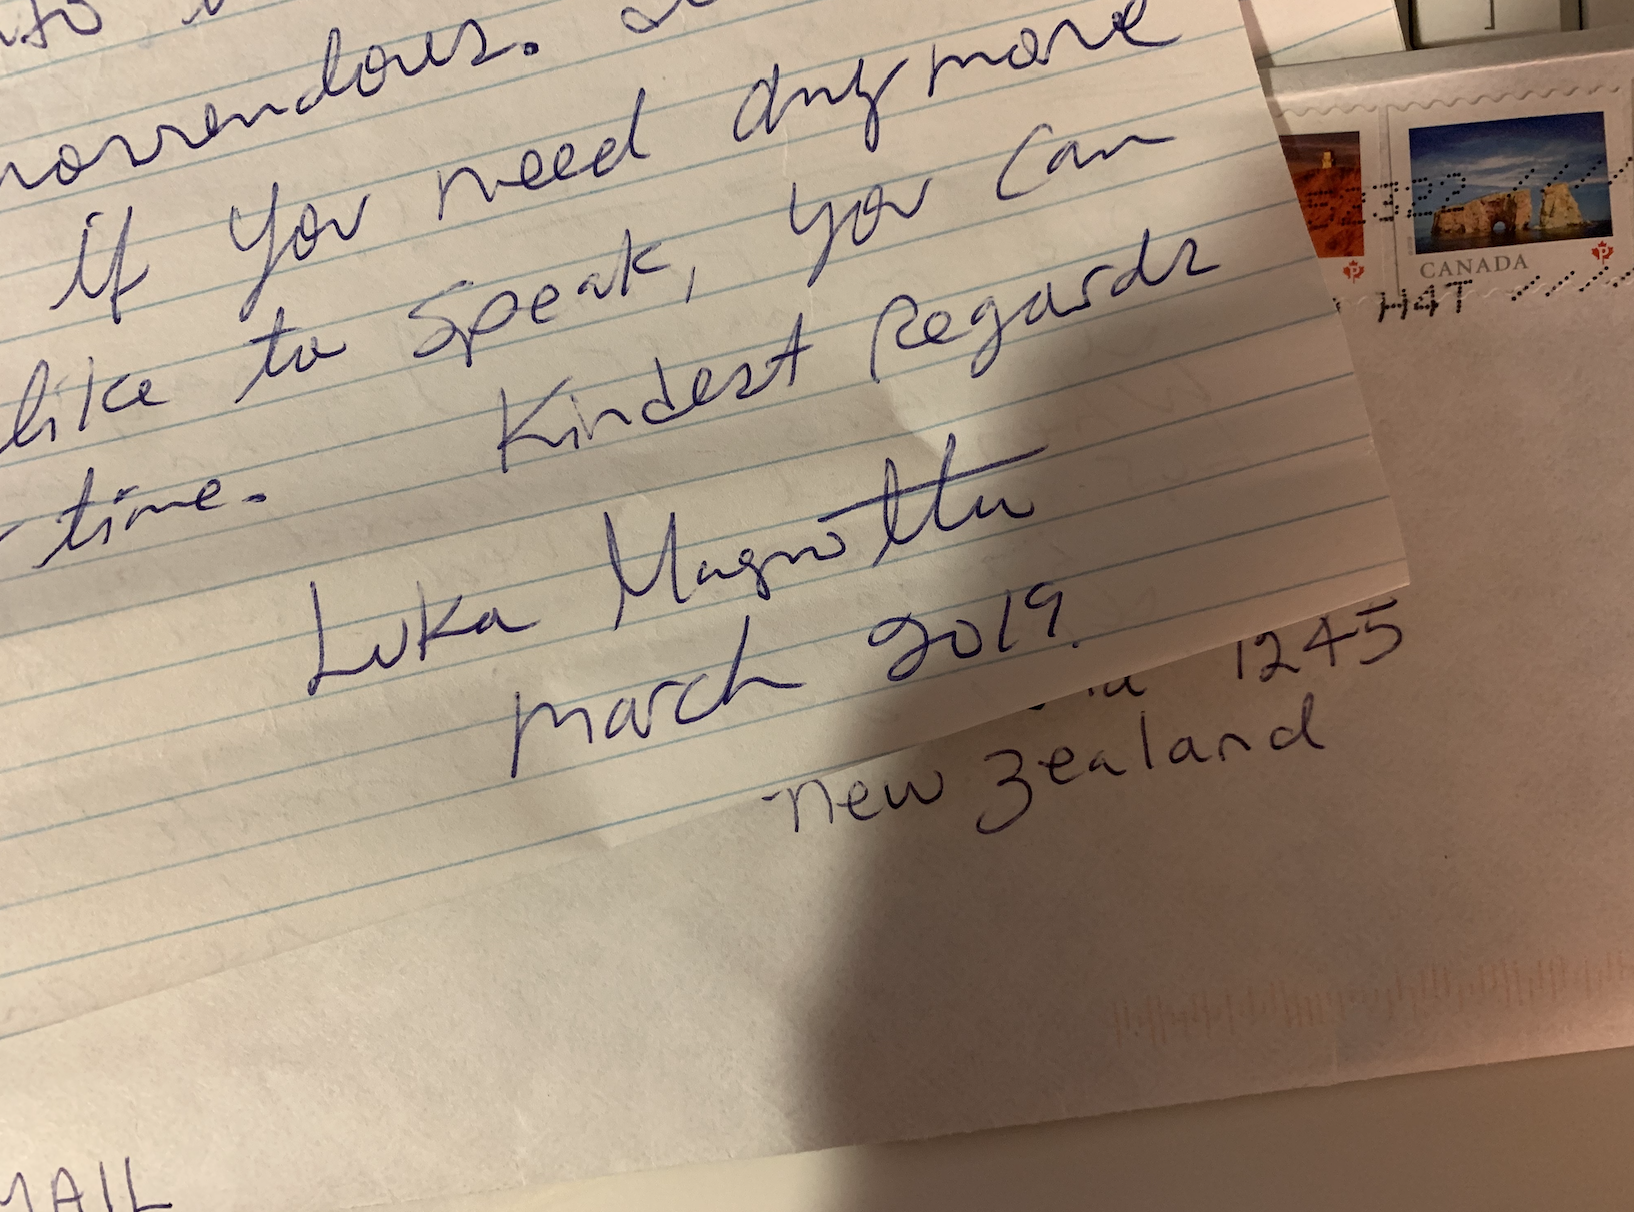 horrendous.
if you need anymore
like to speak, you can
time. Kindest Regards
Luka Magnotta
March 2019.
CANADA
H4T
1245
new zealand
MAIL